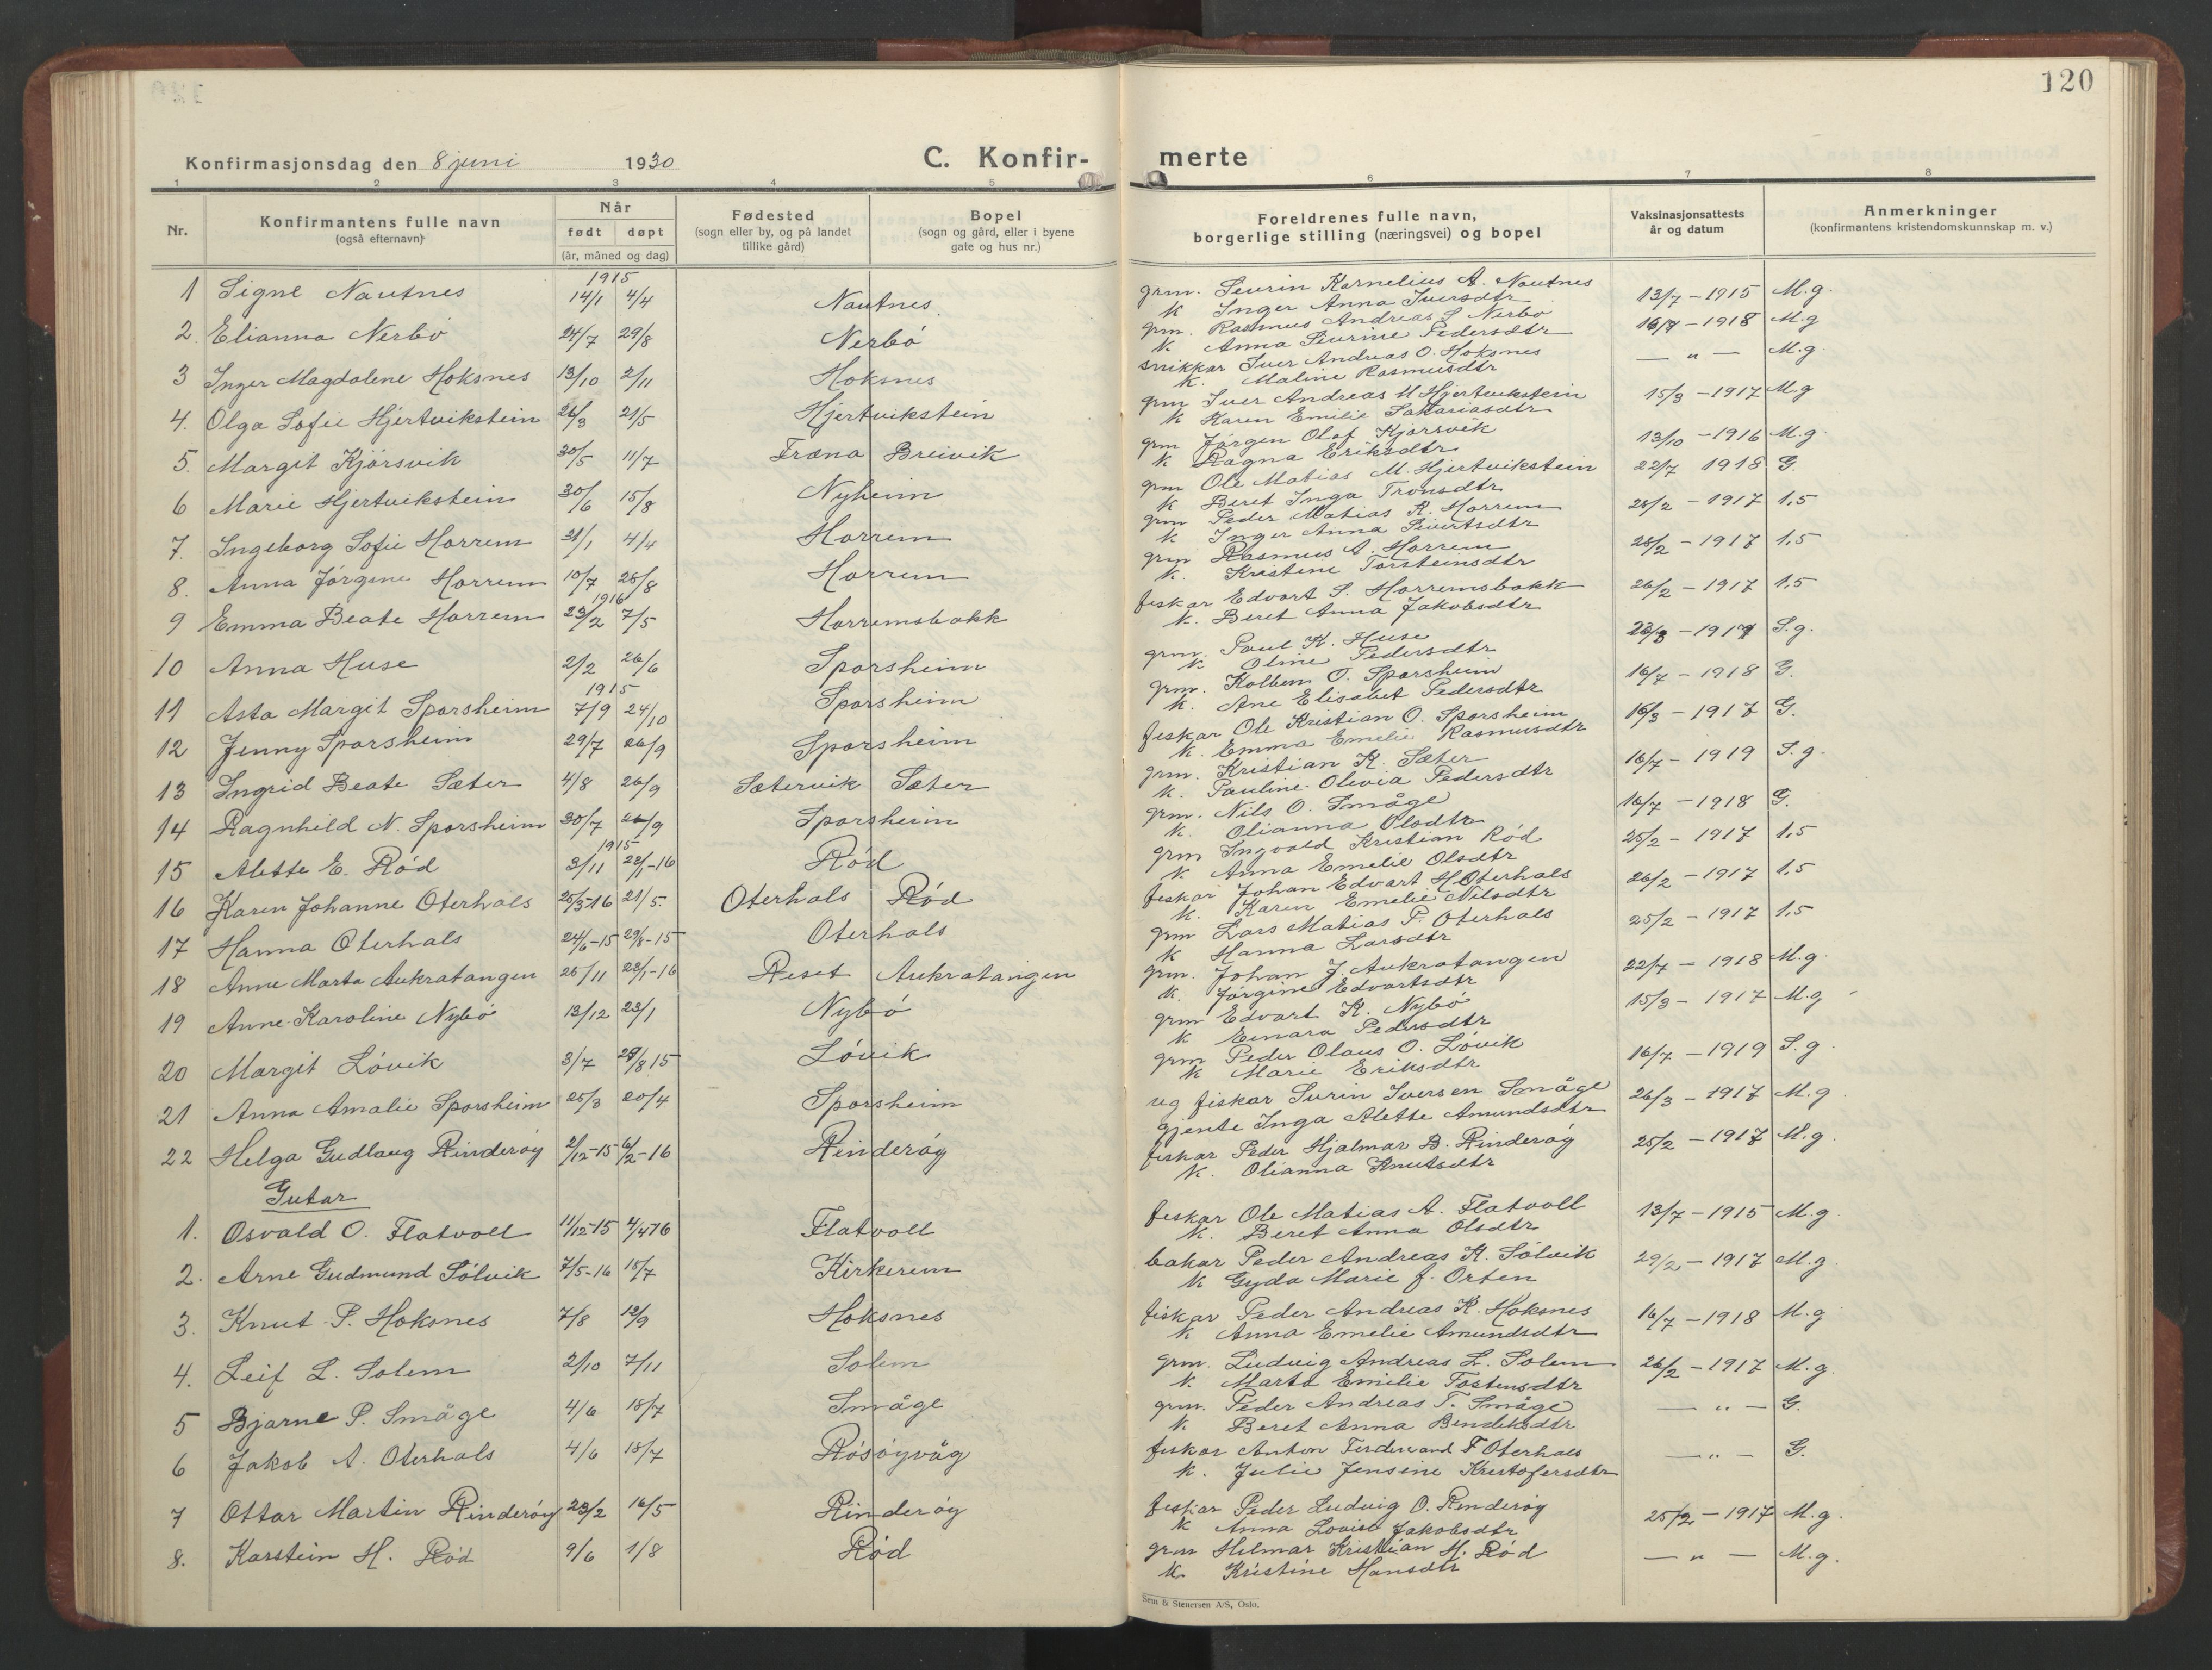 120
Konfirmasjonsdag den 8 juni 1930
C. Konfir-
merte
1 2 3 4 5 6 7 8
Nr.
Konfirmantens fulle navn
(også efternavn)
Når
født døpt
(år, måned og dag)
Fødested
(sogn eller by, og på landet
tillike gård)
Bopel
(sogn og gård, eller i byene
gate og hus nr.)
Foreldrenes fulle navn,
borgerlige stilling (næringsvei) og bopel
Vaksinasjonsattests
år og datum
Anmerkninger
(konfirmantens kristendomskunnskap m. v.)
1915
1 Signe Nautnes 14/1 4/4 Nautnes. grm. Sevrin Karnelius A. Nautnes 13/7 - 1915 M.g.
k Inger Anna Iversdtr
2. Elianna Nerbö 24/7 29/8 Nerbö grm. Rasmus Andreas S Nerbö 16/7 - 1918 M.g
k. Anna Sevrine Pedersdtr
3 Inger Magdalene Hoksnes 13/10 2/11 Hoksnes snikkar Iver Andreas O. Hoksnes — " — M.g.
k. Maline Rasmusdtr
4. Olga Sofie Hjertvikstein 26/3 21/5 Hjertvikstein grm Iver Andreas M Hjertvikstein 15/3 - 1917 M.g
k Karen Emilie Sakariasdtr
5. Margit Kjörsvik 30/5 11/7 Fræna Breivik grm Jörgen Olaf Kjörsvik 13/10 - 1916 M.g.
k Ragna Eriksdtr
6 Marie Hjertvikstein 30/6 15/8 Nyheim grm Ole Matias M. Hjertvikstein 22/7 1918 G.
k Beret Inga Tronsdtr
7. Ingeborg Sofie Harrem 31/1 4/4 Harrem grm Peder Matias K. Harrem 28/2 - 1917 1,5
k Inger Anna Sivertsdtr
8. Anna Jörgine Harrem 10/7 28/8 Harrem grm Rasmus A. Harrem 28/2 - 1917 1,5
k. Kristine Torsteinsdtr
1916
9 Emma Beate Harrem 23/2 7/5 Harremsbakk fiskar Edvart S. Harremsbakk 26/2 - 1917 1,5
k. Beret Anna Jakobsdtr
10 Anna Huse 2/2 26/6 Sporsheim grm. Paul K. Huse 23/3 - 1917 S.g.
k Oline Pedersdtr
1915
11 Asta Margit Sporsheim 7/9 24/10 Sporsheim grm. Kolbein O. Sporsheim 16/7 - 1918 G.
k. Ane Elisabet Pedersdtr
12 Jenny Sporsheim 29/7 26/9 Sporsheim fiskar Ole Kristian O. Sporsheim 15/3 - 1917 G.
k. Emma Emelie Rasmusdtr
13 Ingrid Beate Sæter 4/8 26/9 Sætervik Sæter grm. Kristian K. Sæter 16/7 - 1919 S.g.
k. Pauline Olivia Pedersdtr
14 Ragnhild N. Sporsheim 30/7 26/9 Sporsheim grm. Nils O. Småge 16/7 - 1918 G.
k. Olianna Olsdtr
1915
15 Alette E. Röd 3/11 22/1-16 Röd grm Ingvald Kristian Röd 25/2 - 1917 1,5
k Anna Emelie Olsdtr
16 Karen Johanne Oterhals 25/3-16 21/5. Oterhals Röd fiskar Johan Edvart H Oterhals 26/2 - 1917 1,5
k. Karen Emelie Nilsdtr
17 Hanna Oterhals 24/6-15 29/8-15 Oterhals grm Lars Matias P. Oterhals 25/2 - 1917 1,5
k Hanna Larsdtr
18 Anne Marta Aukratangen 25/11 23/1-16 Reset Aukratangen grm. Johan J. Aukratangen 22/7 - 1918 M.g.
k. Jörgine Edvartsdtr
19 Anne Karoline Nybö 13/12 23/1 Nybö grm Edvart K. Nybö 15/3 - 1917 M.g
k Einara Pedersdtr
20 Margit Lövik 3/7 29/8 15 Lövik grm Peder Olaus O. Lövik 16/7 - 1919 S.g.
k Marie Eriksdtr
21 Anna Amalie Sporsheim 25/3 20/4 Sporsheim ug fiskar Surin Iversen Småge 26/3 - 1917 M.g.
gjente Inga Alette Amundsdtr
22 Helga Gudlaug Rinderöy 2/12-15 6/2-16 Rinderöy fiskar Peder Hjalmar B. Rinderöy 25/2 - 1917 M.g.
k. Olianna Knutsdtr
Gutar
1. Osvald O. Flatvoll 11/12-15 4/4 16 Flatvoll fiskar Ole Matias A. Flatvoll 13/7 - 1915 M.g.
k. Beret Anna Olsdtr
2. Arne Gudmund Sölvik 7/5-16 15/7 Kirkerem bakar Peder Andreas K. Sölvik 29/2 - 1917 M.g.
k Gyda Marie J. Orten
3. Knut P. Hoksnes 7/8 12/9 Hoksnes fiskar Peder Andreas K. Hoksnes 16/7 - 1918 M.g
k Anna Emelie Amundsdtr
4. Leif L. Solem 2/10 7/11 Solem grm. Ludvig Andreas L. Solem 26/2 - 1917 M.g.
k. Marta Emilie Tostensdtr
5 Bjarne P. Småge 4/6 18/7 Småge grm. Peder Andreas T. Småge — " — G.
k. Beret Anna Bendiksdtr
6 Jakob A. Oterhals 4/6 18/7 Rösöyvåg fiskar Anton Ferdinand F Oterhals — " — G.
k. Julie Jensine Kristofersdtr
7 Ottar Martin Rinderöy 23/2 16/5 Rinderöy fiskar Peder Ludvig O. Rinderöy 25/2 - 1917 M.g.
k Anna Lovise Jakobsdtr
8. Karstein H. Röd 9/6 1/8 Röd grm Hilmar Kristian H. Röd — " — M.g.
k. Kristine Hansdtr
Sem & Stenersen A/S, Oslo.